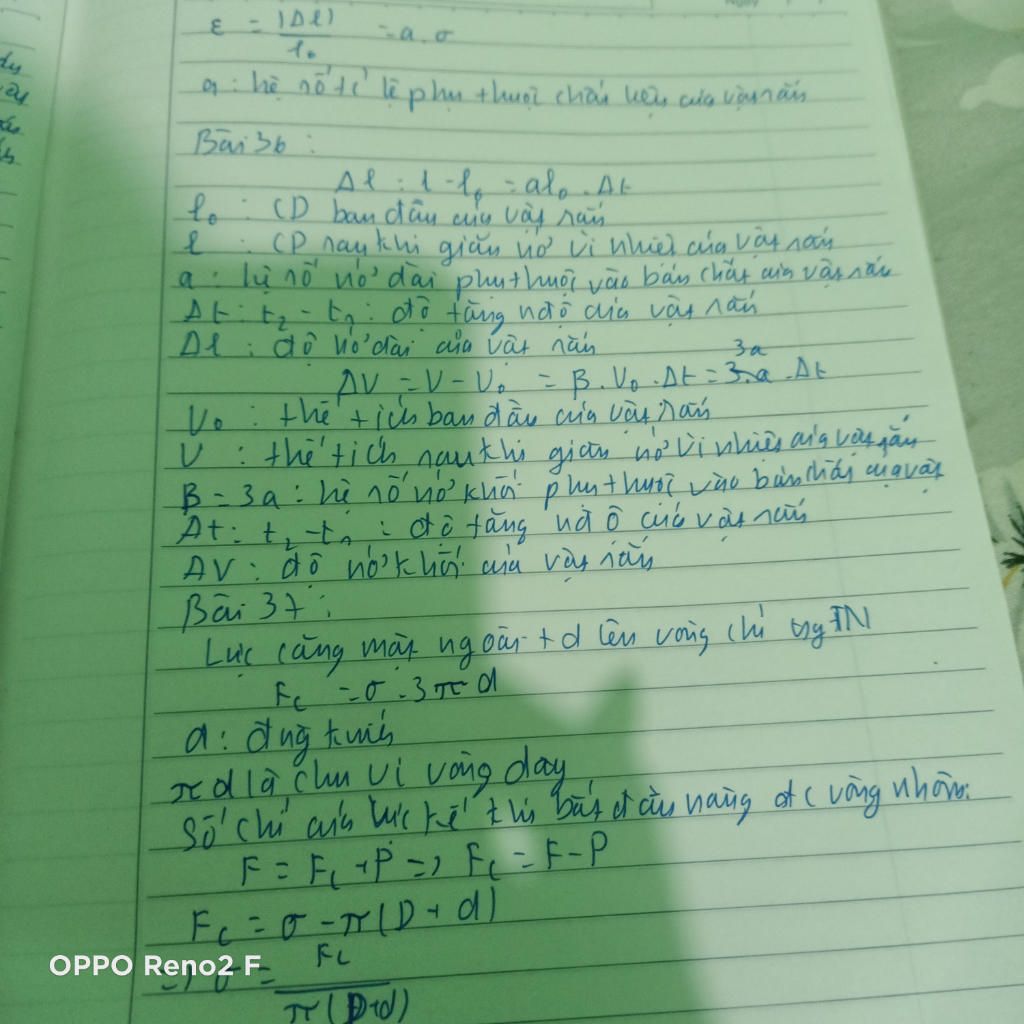 ε = |Δl| / l₀ = a.σ
a : hệ số tỉ lệ phụ thuộc chất liệu của vật rắn
Bài 36 :
Δl : l - l₀ = al₀ . Δt
l₀ : CD ban đầu của vật rắn
l : CD sau khi giãn nở vì nhiệt của vật rắn
a : hệ số nở dài phụ thuộc vào bản chất của vật rắn
Δt : t₂ - t₁ : độ tăng nđộ của vật rắn
Δl : độ nở dài của vật rắn
3a
ΔV = V - V₀ = β . V₀ . Δt = 3.a . Δt
V₀ : thể tích ban đầu của vật rắn
V : thể tích sau khi giãn nở vì nhiệt của vật rắn
β = 3a : hệ số nở khối phụ thuộc vào bản chất của vật
Δt : t₂ - t₁ : độ tăng nđộ của vật rắn
ΔV : độ nở khối của vật rắn
Bài 37 :
Lực căng mặt ngoài t d lên vòng chỉ TN
Fc = σ . 3πd
d : đng kính
πd là chu vi vòng dây
Số chỉ của lực kế khi bắt đầu nâng đc vòng nhôm:
F = Fc + P => Fc = F - P
Fc = σ - π(D + d)
=> σ = Fc / π(D+d)
OPPO Reno2 F